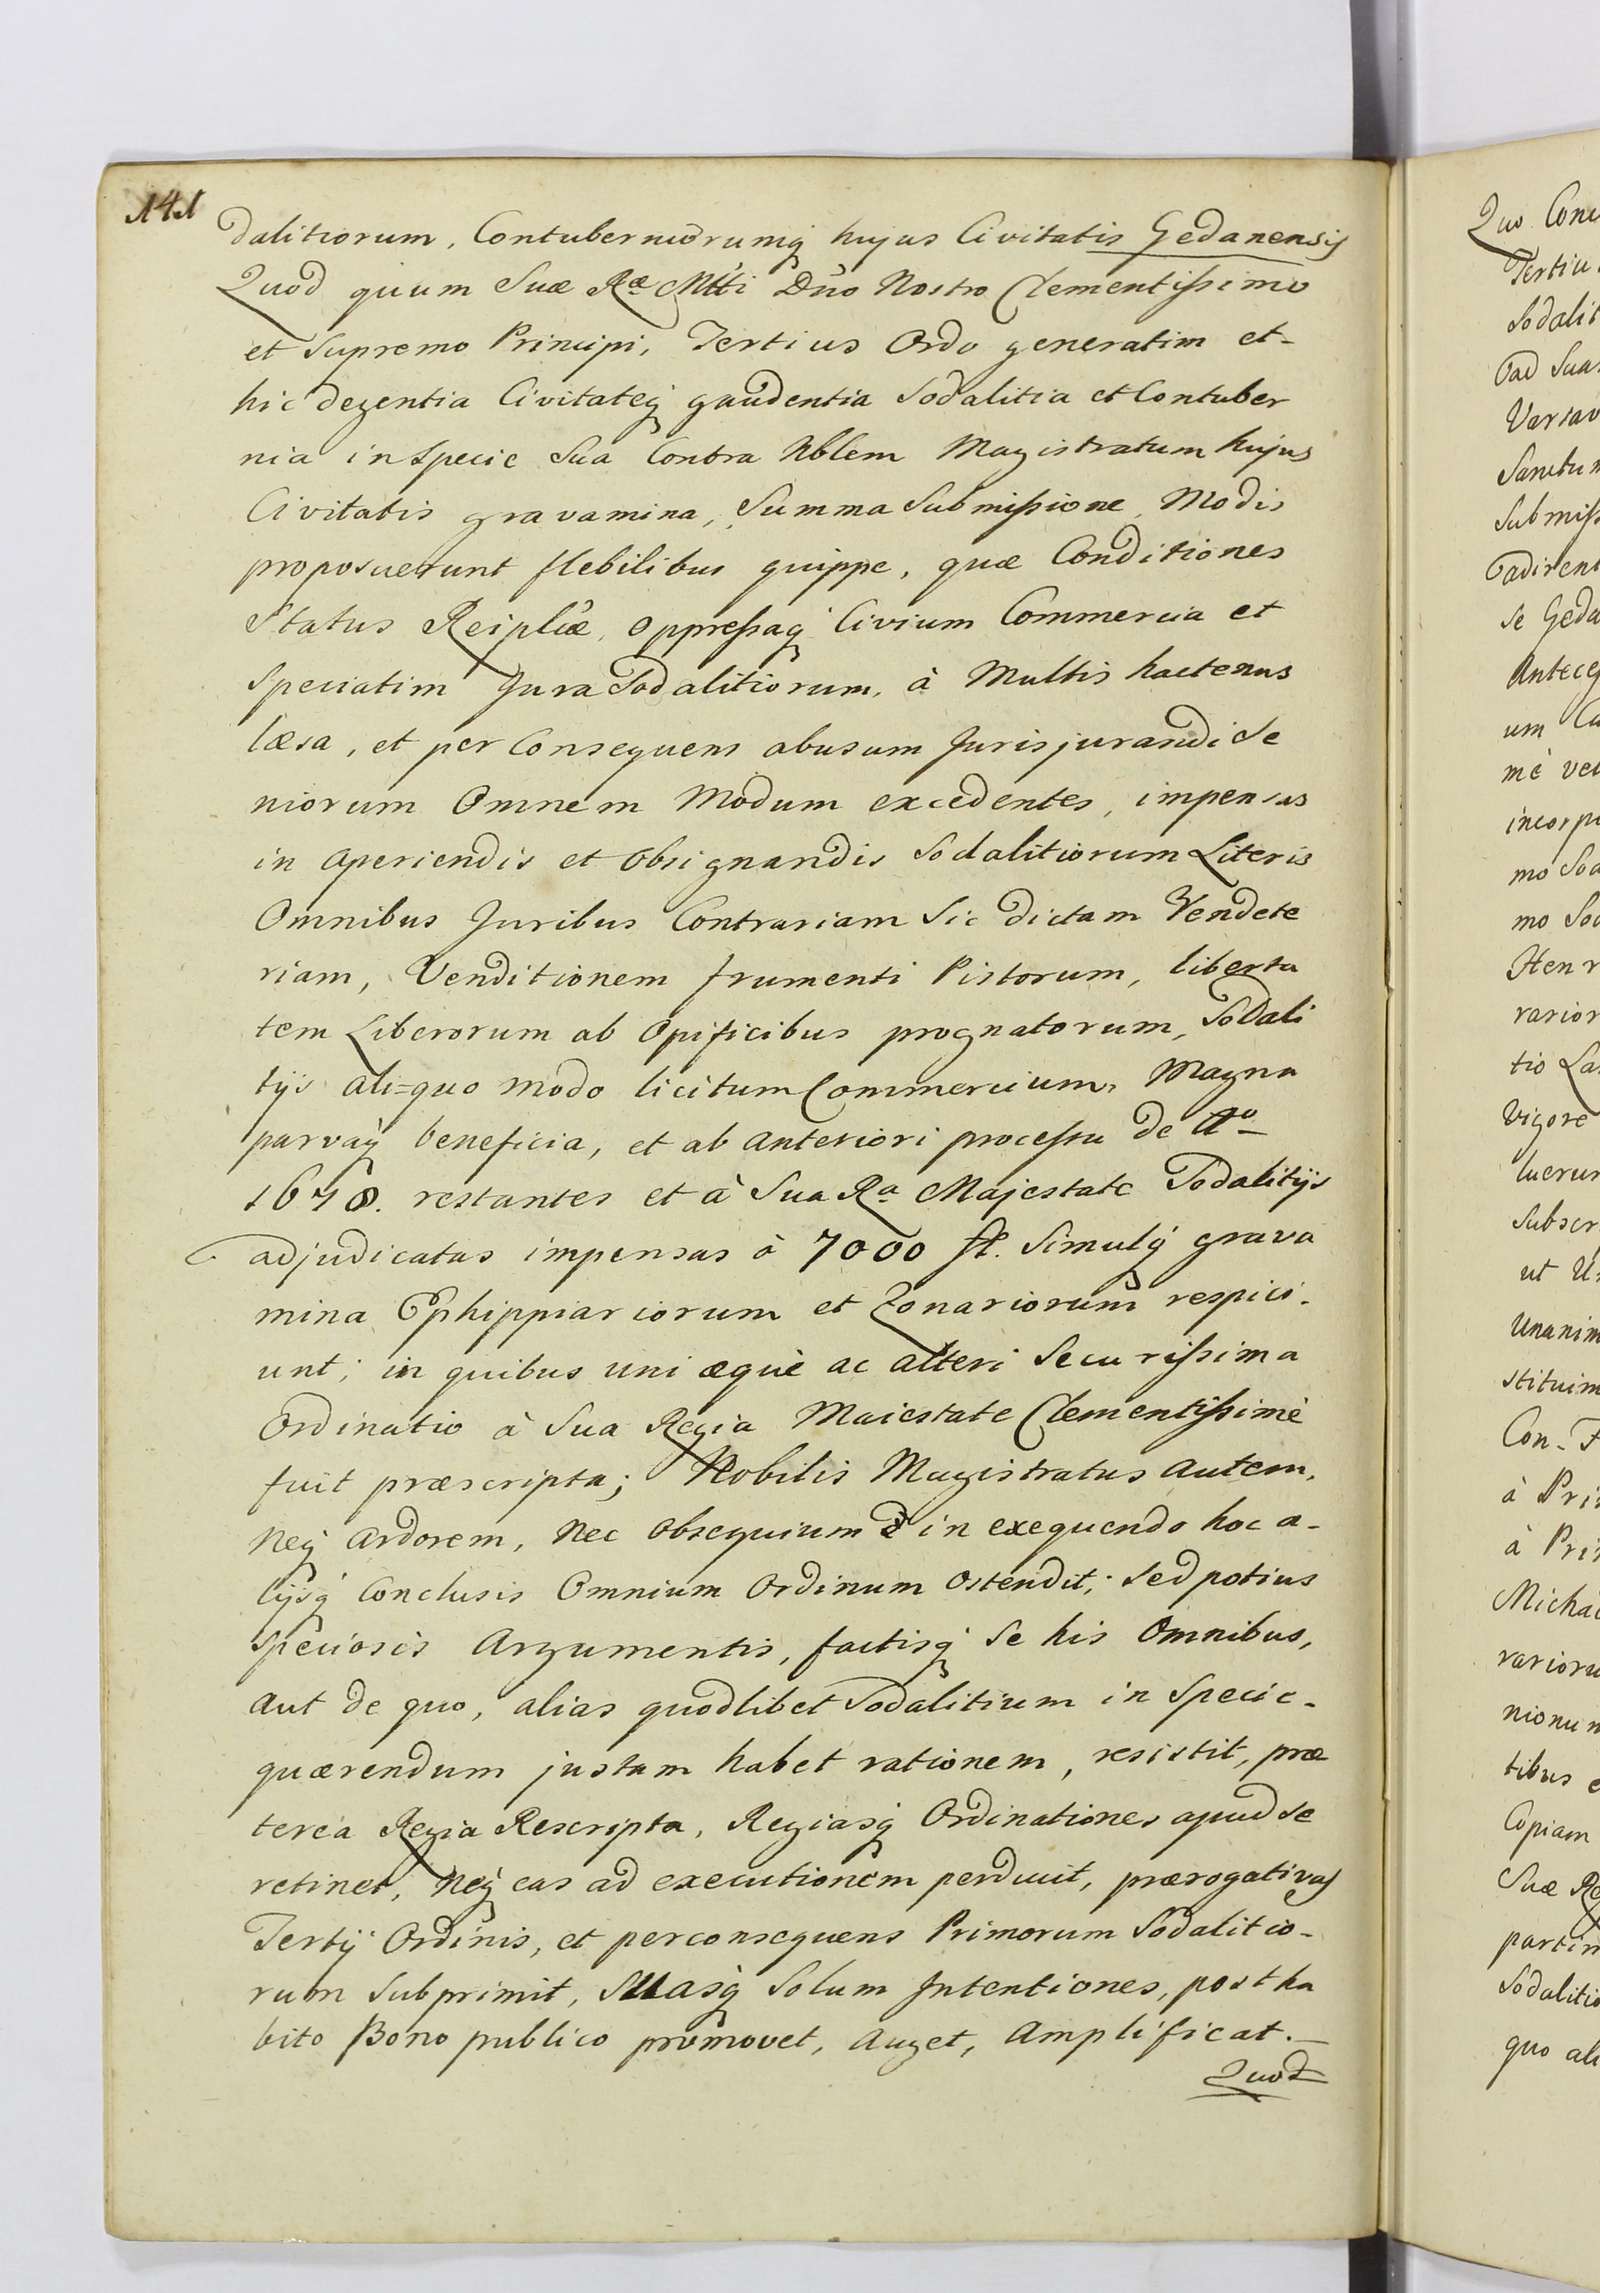 141
dalitiorum, Contuberniorumq hujus Civitatis Gedanensis
Quod quum Suæ Ræ Mtti Dno Nostro Clementissimo
et Supremo Principi, Tertius Ordo generatim et-
hic degentia Civitateq gaudentia Sodalitia et Contuber
nia in Specie Sua Contra Nblem Magistratum hujus
Civitatis gravamina, Summa Submissione, Modis
proposuerunt flebilibus quippe, quæ Conditiones
Status Reiplcæ, oppressaq Civium Commercia et
Speciatim Jura Sodalitiorum, à Multis hactenus
læsa, et per Consequens abusum Jurisjurandi Se
niorum Omnem Modum excedentes, impensas
in aperiendis et Obsignandis Sodalitiorum Literis
Omnibus Juribus Contrariam Sic dictam Vendete
riam, Venditionem frumenti Pistorum, liberta
tem Liberorum ab Opificibus prognatorum, Sodali
tijs ali=quo modo licitum Commercium, Magna
parvaq beneficia, et ab anteriori processu de Ao
1678. restantes et à Sua Ra Majestate Sodalitijs
adjudicatas impensas à 7000 fl. Simulq grava
mina Ephippiariorum et Zonariorum respici-
unt; in quibus uni æquè ac alteri Securissima
Ordinatio à Sua Regia Maiestate Clementissimè
fuit præscripta; Nobilis Magistratus autem,
Neq ardorem, Nec Obsequium in exequendo hoc a-
lijsq Conclusis Omnium Ordinum ostendit; Sed potius
Speciosis Argumentis, factisq Se his Omnibus,
aut de quo, alias quodlibet Sodalitium in Specie-
quærendum justam habet rationem, resistit, præ
terea Regia Rescripta, Regiasq Ordinationes apud se
retinet, Neq eas ad executionem perducit, prærogativas
Tertij Ordinis, et perconsequens Primorum Sodalitio-
rum Subprimit, Suasq Solum Intentiones, postha
bito Bono publico promovet, Auget, Amplificat.-
Quod
Quo
Tertiu
Sodalit
ad Sua
Versav
Submiss
Se Geda
um
mè
mo
mo
Henr
varior
tio
Vigore
luerun
Subscr
ut
Unanim
stituim
Con-
à Pri
à Pri
Michae
rarioru
nionum
tibus
Copiam
Suæ
partim
Sodalitio
quo ali